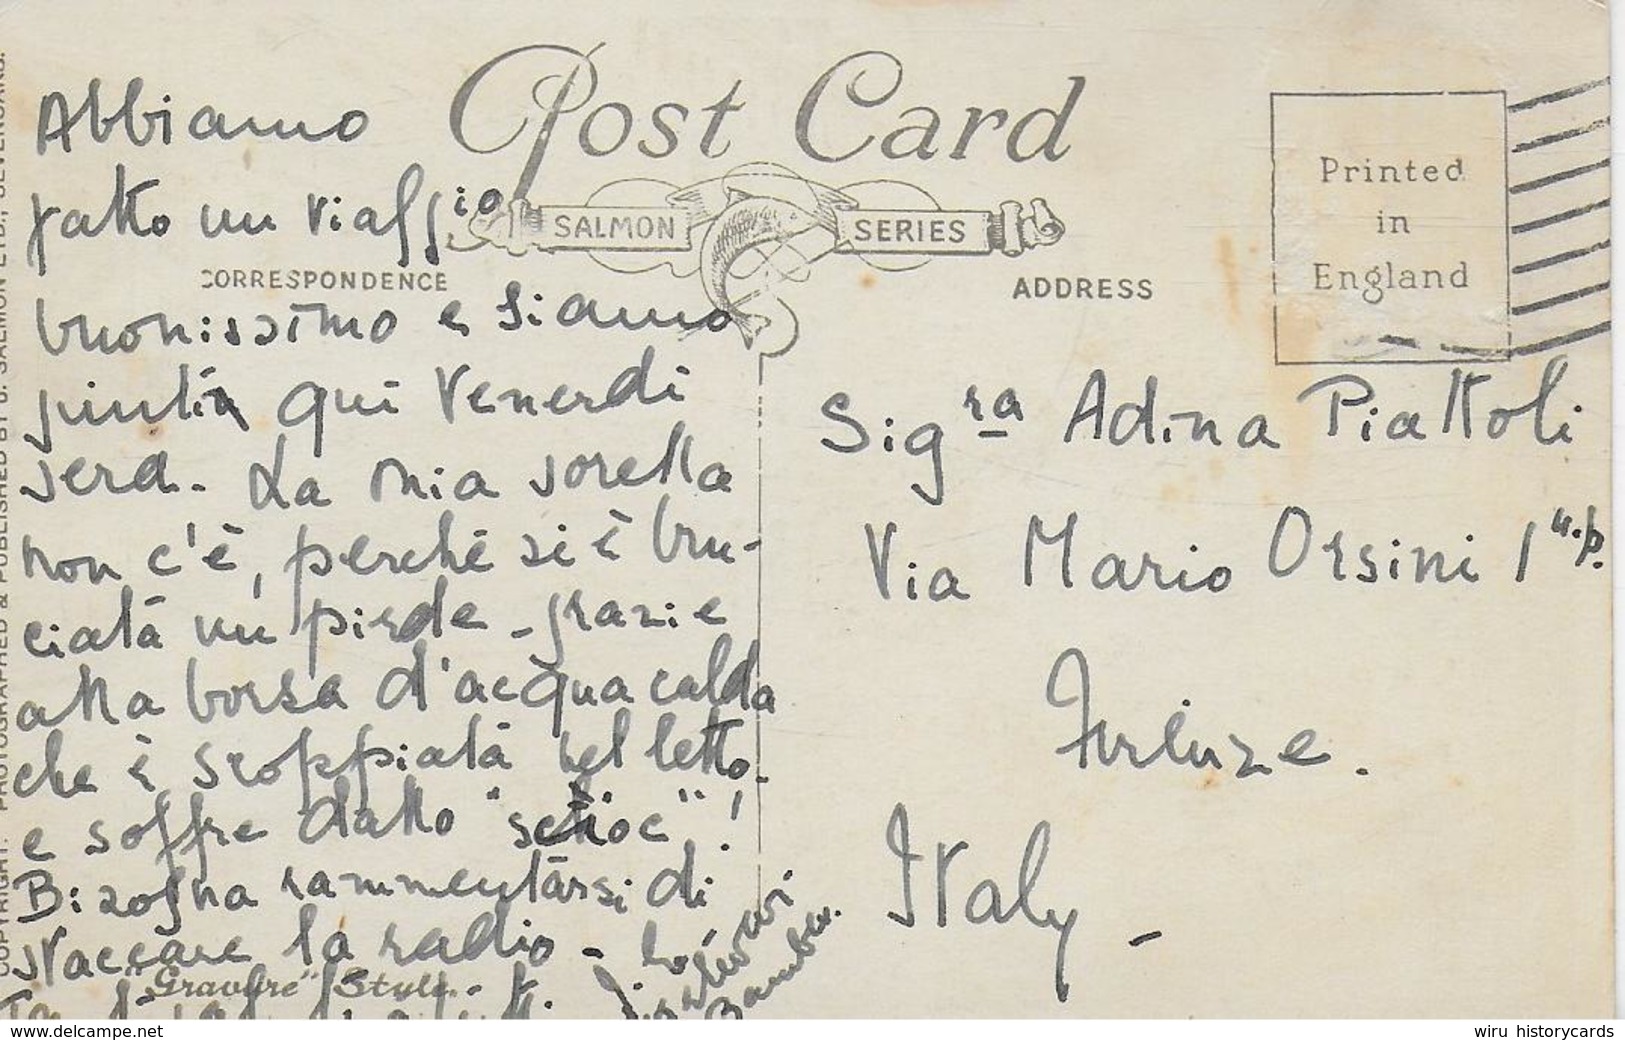 Post Card
SALMON SERIES
CORRESPONDENCE
ADDRESS
Printed
in
England
Abbiamo
fatto un viaggio
buonissimo e siamo
giunti qui Venerdi
sera. La mia sorella
non c'è, perchè si è bru-
ciata un piede - grazie
alla borsa d'acqua calda
che è scoppiata nel letto -
e soffre dallo "schoc"!
Bisogna rammentarsi di
staccare la radio -
Sig.ra Adina Piattoli
Via Mario Orsini 1
Firenze.
Italy -
"Gravure" Style.
COPYRIGHT. PHOTOGRAPHED & PUBLISHED BY J. SALMON LTD., SEVENOAKS.
www.delcampe.net
wiru historycards